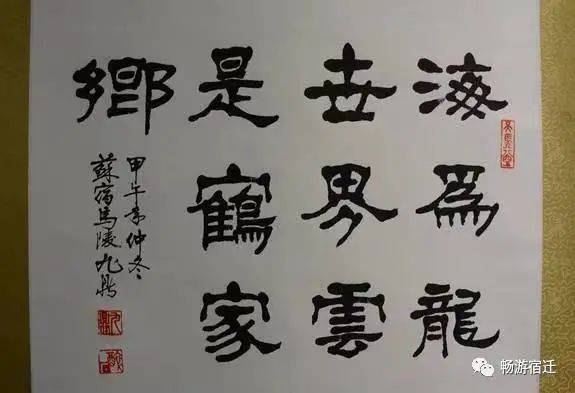 海為龍
世界雲
是鶴家
鄉
甲午年仲冬
蘇宿馬陵九鼎
畅游宿迁